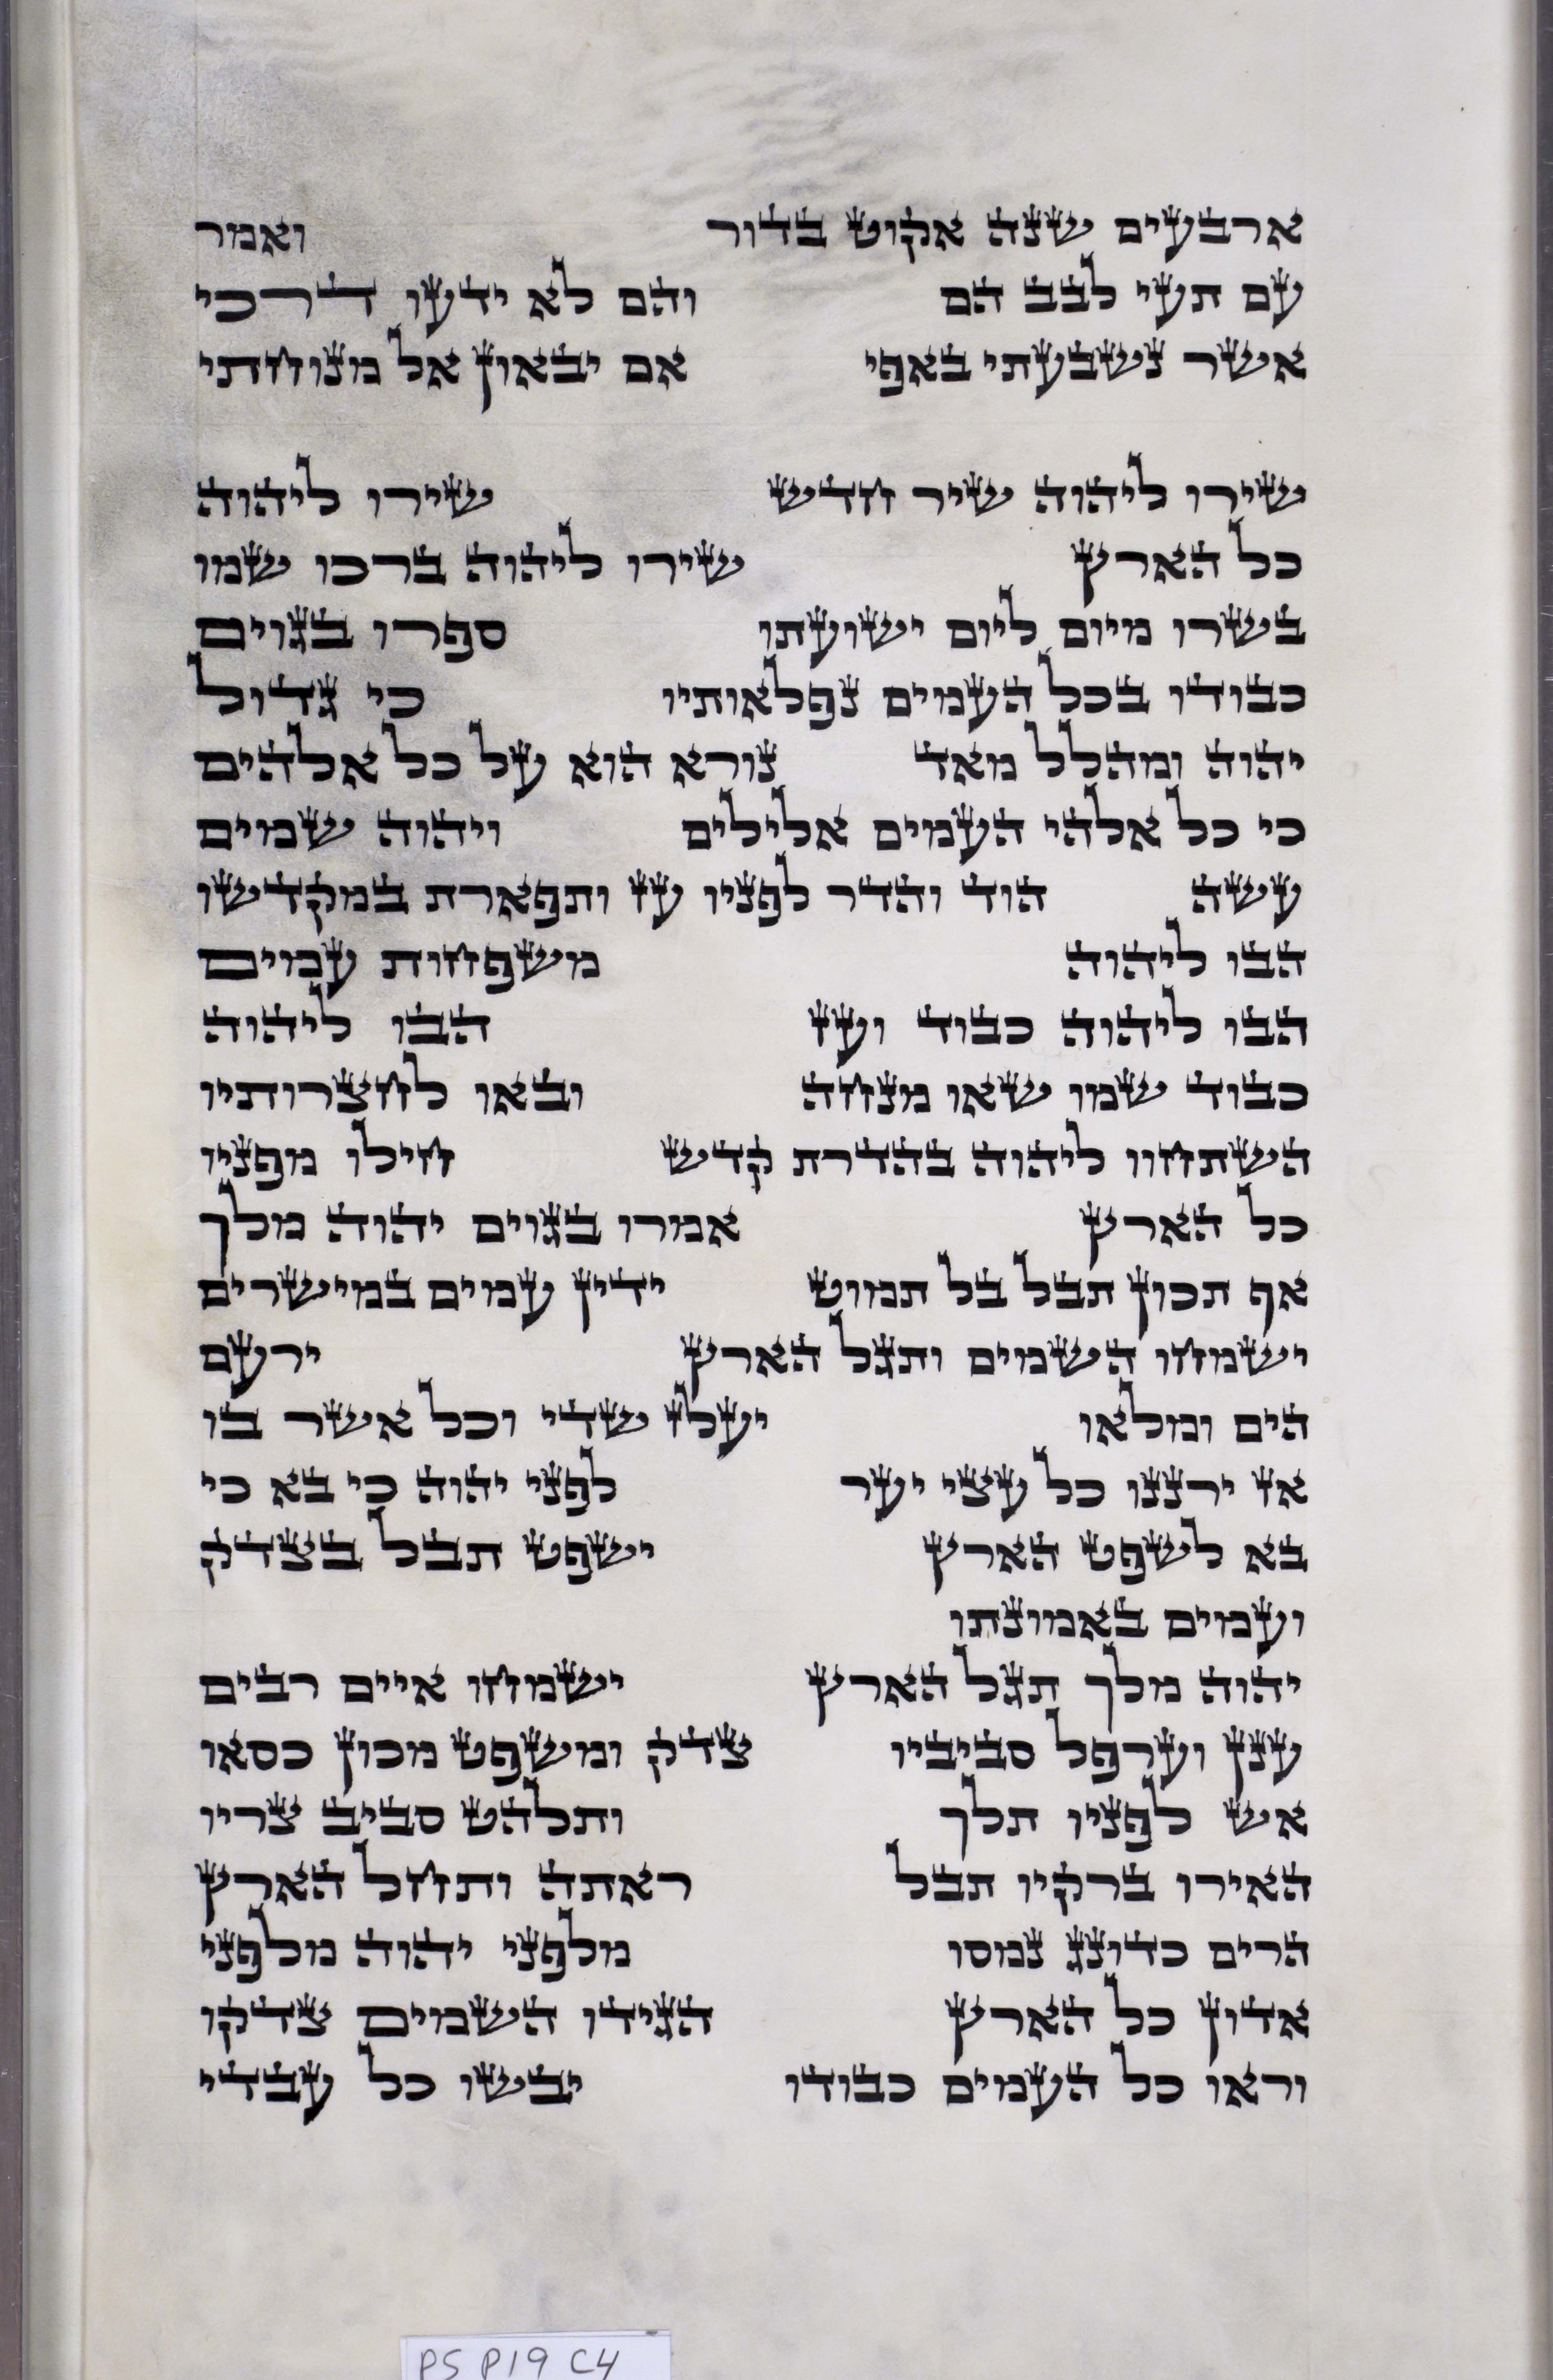 ארבעים שנה אקוט בדור ואמר
עם תעי לבב הם והם לא ידעו דרכי
אשר נשבעתי באפי אם יבאון אל מנוחתי
שירו ליהוה שיר חדש שירו ליהוה
כל הארץ שירו ליהוה ברכו שמו
בשרו מיום ליום ישועתו ספרו בגוים
כבודו בכל העמים נפלאותיו כי גדול
יהוה ומהלל מאד נורא הוא על כל אלהים
כי כל אלהי העמים אלילים ויהוה שמים
עשה הוד והדר לפניו עז ותפארת במקדשו
הבו ליהוה משפחות עמים
הבו ליהוה כבוד ועז הבו ליהוה
כבוד שמו שאו מנחה ובאו לחצרותיו
השתחוו ליהוה בהדרת קדש חילו מפניו
כל הארץ אמרו בגוים יהוה מלך
אף תכון תבל בל תמוט ידין עמים במישרים
ישמחו השמים ותגל הארץ ירעם
הים ומלאו יעלז שדי וכל אשר בו
אז ירננו כל עצי יער לפני יהוה כי בא כי
בא לשפט הארץ ישפט תבל בצדק
ועמים באמונתו
יהוה מלך תגל הארץ ישמחו איים רבים
ענן וערפל סביביו צדק ומשפט מכון כסאו
אש לפניו תלך ותלהט סביב צריו
האירו ברקיו תבל ראתה ותחל הארץ
הרים כדונג נמסו מלפני יהוה מלפני
אדון כל הארץ הגידו השמים צדקו
וראו כל העמים כבודו יבשו כל עבדי
PS P19 C4